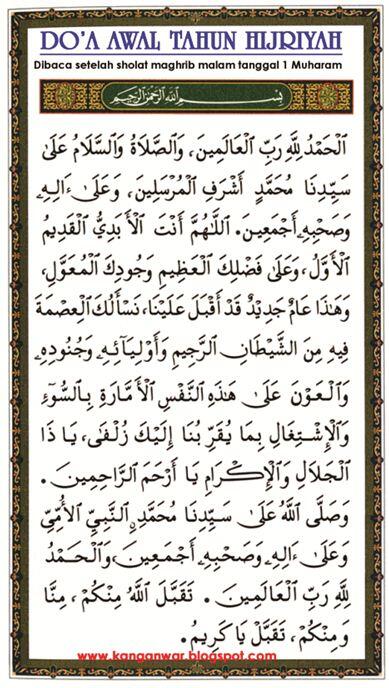 DO'A AWAL TAHUN HIJRIYAH
Dibaca setelah sholat maghrib malam tanggal 1 Muharam
بِسْمِ اللهِ الرَّحْمٰنِ الرَّحِيْمِ
اَلْحَمْدُ لِلّٰهِ رَبِّ الْعَالَمِينَ، وَالصَّلَاةُ وَالسَّلَامُ عَلَىٰ
سَيِّدِنَا مُحَمَّدٍ أَشْرَفِ الْمُرْسَلِينَ، وَعَلَىٰ ءَالِهِ
وَصَحْبِهِ أَجْمَعِينَ. اَللّٰهُمَّ أَنْتَ الْأَبَدِيُّ الْقَدِيمُ
الْأَوَّلُ، وَعَلَىٰ فَضْلِكَ الْعَظِيمِ وَجُودِكَ الْمُعَوَّلِ،
وَهَٰذَا عَامٌ جَدِيدٌ قَدْ أَقْبَلَ عَلَيْنَا، نَسْأَلُكَ الْعِصْمَةَ
فِيهِ مِنَ الشَّيْطَانِ الرَّجِيمِ وَأَوْلِيَآئِهِ وَجُنُودِهِ
وَالْعَوْنَ عَلَىٰ هَٰذِهِ النَّفْسِ الْأَمَّارَةِ بِالسُّوٓءِ
وَالْإِشْتِغَالِ بِمَا يُقَرِّبُنَا إِلَيْكَ زُلْفَىٰ، يَا ذَا
الْجَلَالِ وَالْإِكْرَامِ يَا أَرْحَمَ الرَّاحِمِينَ.
وَصَلَّى اللّٰهُ عَلَىٰ سَيِّدِنَا مُحَمَّدٍ النَّبِيِّ الْأُمِّيِّ
وَعَلَىٰ ءَالِهِ وَصَحْبِهِ أَجْمَعِينَ، وَالْحَمْدُ
لِلّٰهِ رَبِّ الْعَالَمِينَ. تَقَبَّلَ اللّٰهُ مِنْكُمْ، مِنَّا
وَمِنْكُمْ، تَقَبَّلْ يَا كَرِيمُ.
www.kanganwar.blogspot.com